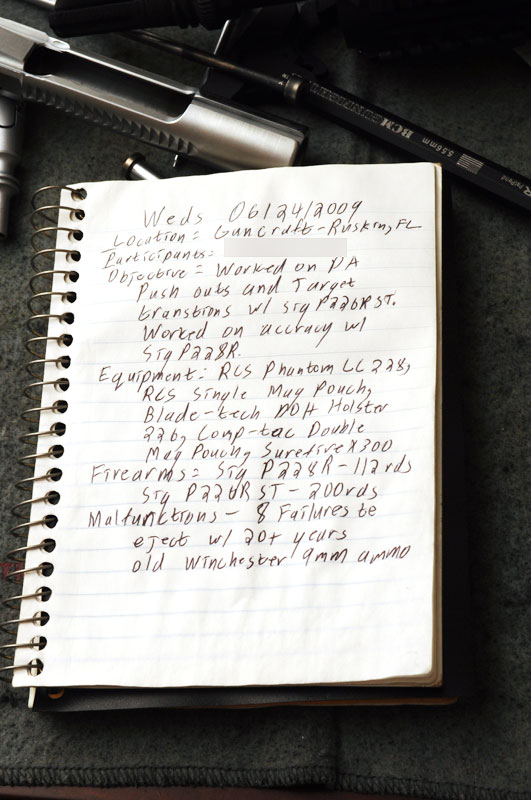 BCM GUNFIGHTER
5.56mm
Weds 06/24/2009
Location = Guncraft-Ruskin, FL
Participants:
Objective = Worked on DA
Push outs and Target
transtions w/ Sig P226R ST.
Worked on accuracy w/
Sig P228R.
Equipment: RCS Phantom LC 228,
RCS Single Mag Pouch,
Blade-tech DOH Holster
226, Comp-tac Double
Mag Pouch, Surefire X300
Firearms = Sig P228R - 112 rds
Sig P226R ST - 200rds
Malfunctions - 8 Failures to
eject w/ 20+ years
old Winchester 9mm ammo